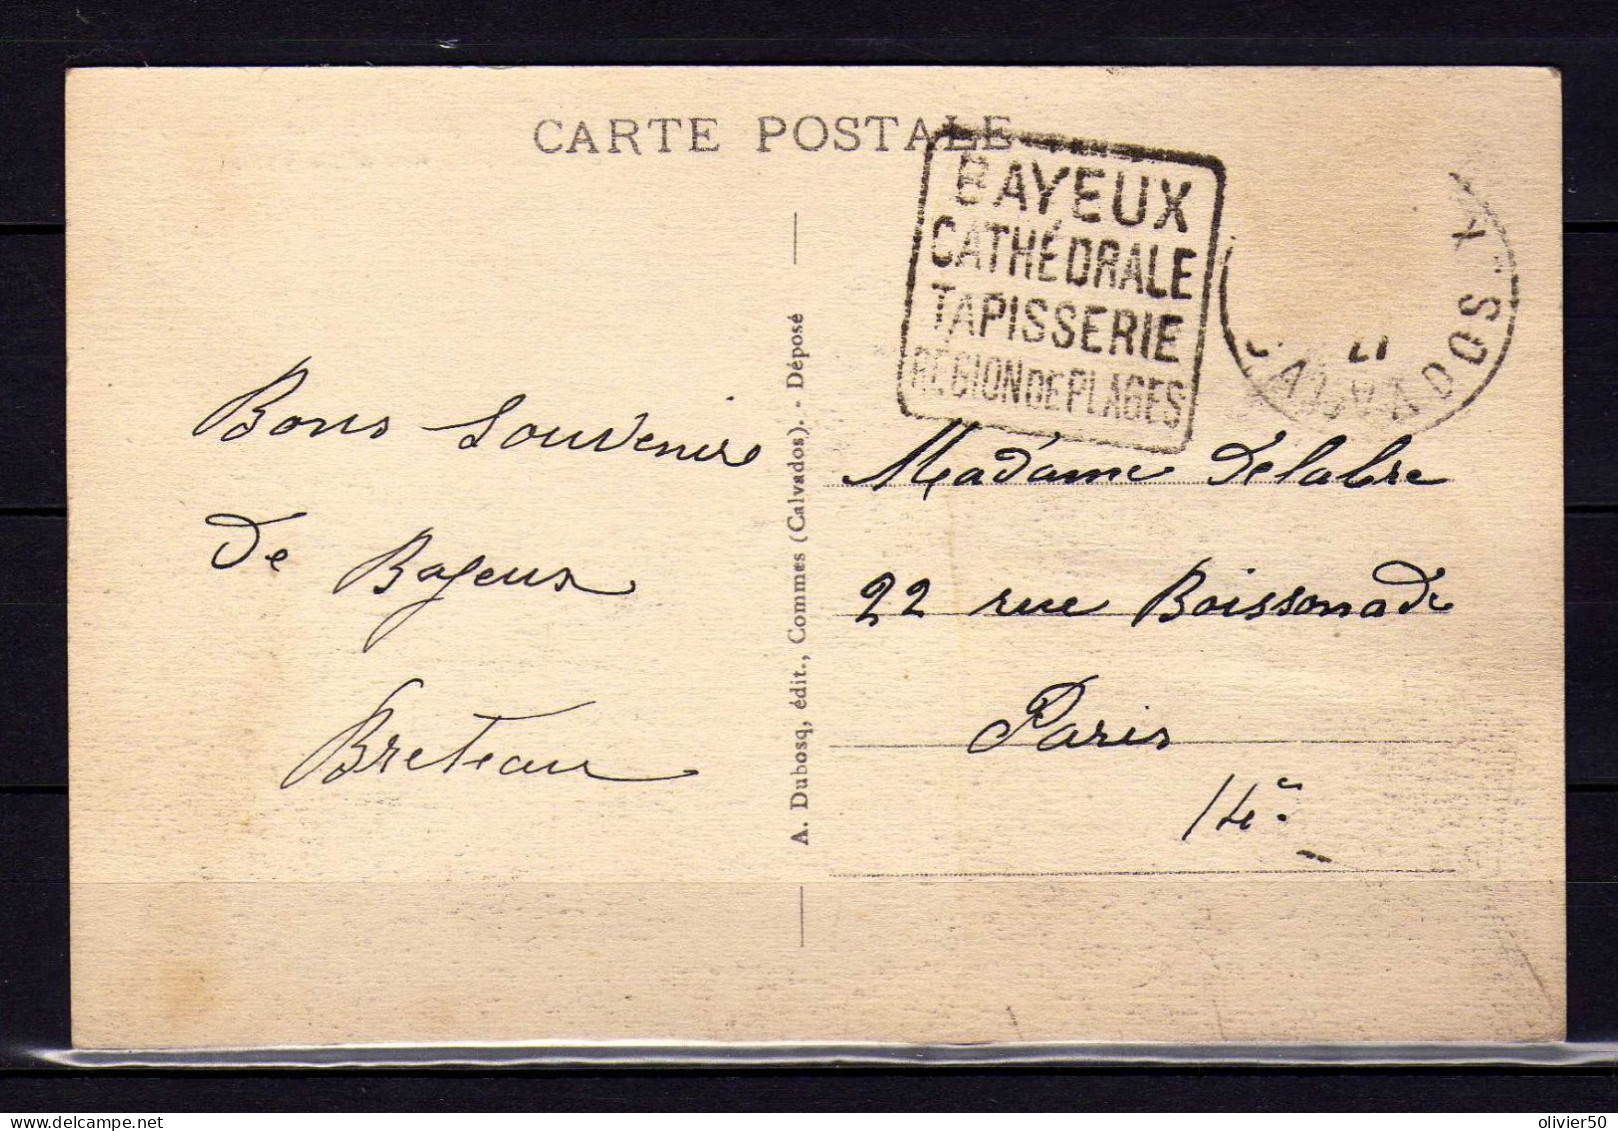 CARTE POSTALE
BAYEUX
CATHÉDRALE
TAPISSERIE
RÉGION DE PLAGES
X
CALVADOS
Bons Souvenirs
de Bayeux
Breteau
A. Dubosq, édit., Commes (Calvados). - Déposé
Madame Delabre
22 rue Boissonade
Paris
14e.
delcampe.net
olivier50